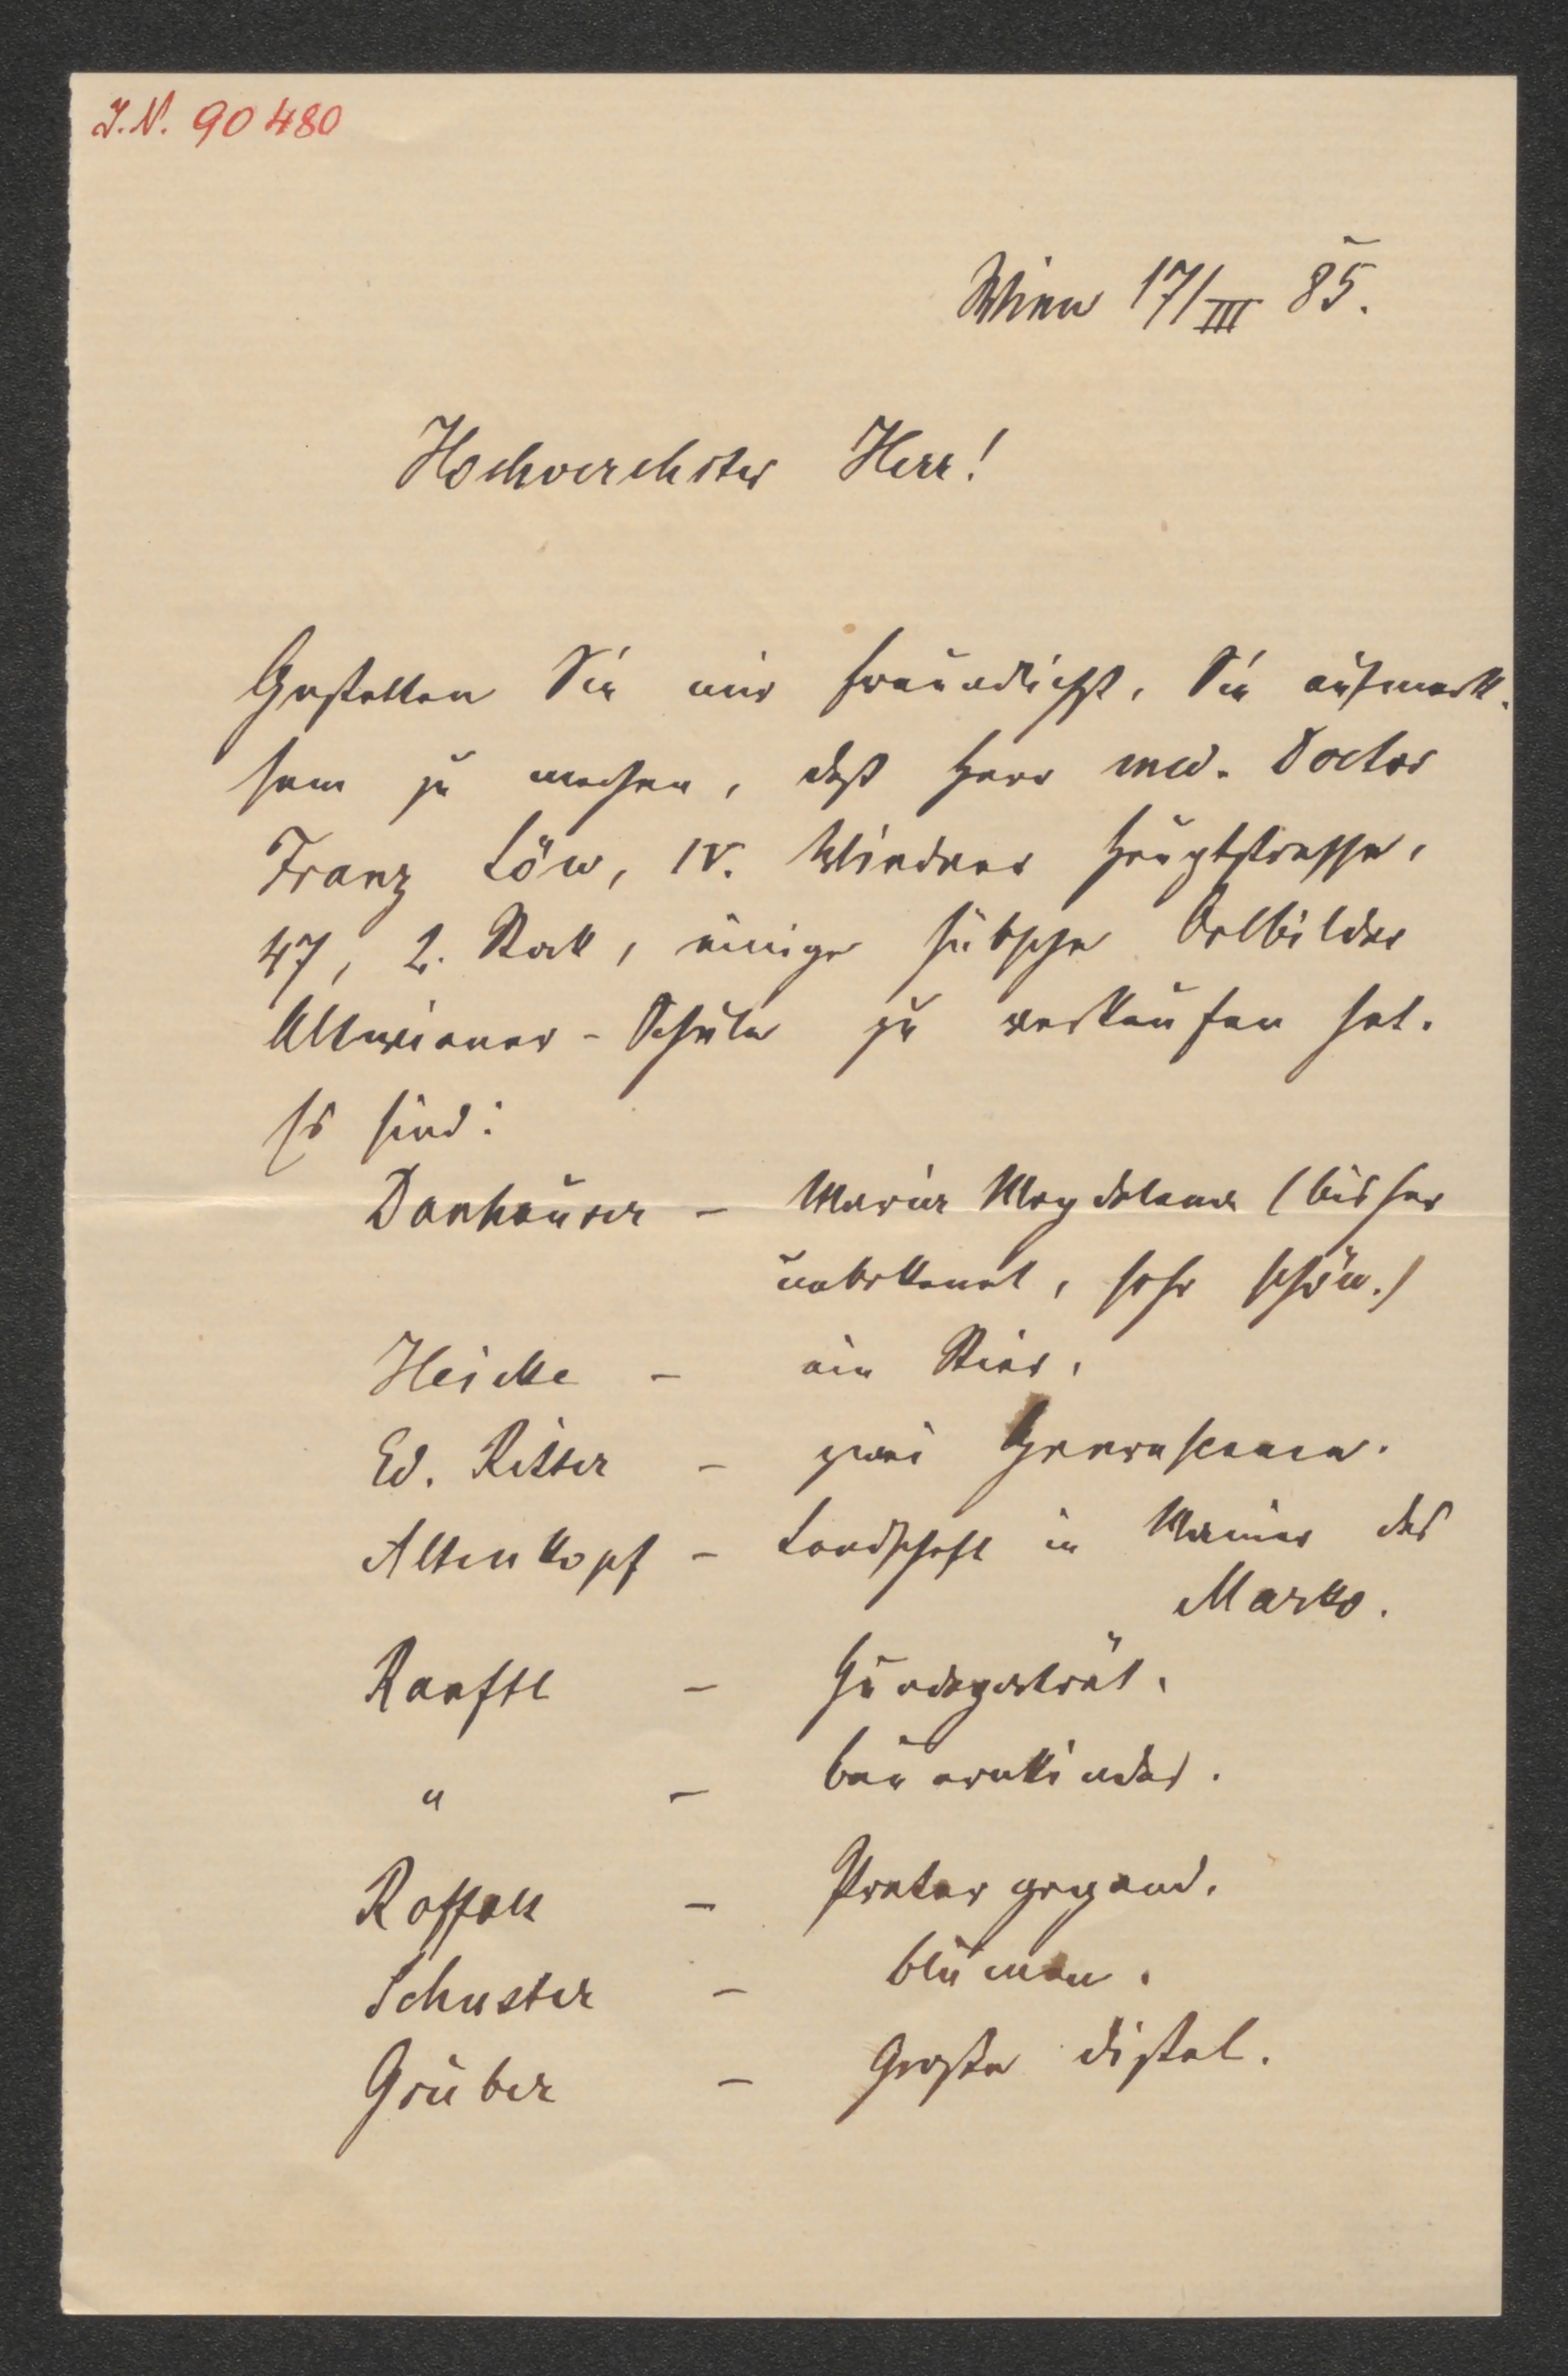 J.N. 90480
Wien 17/III 85.
Hochverehrter Herr!
Gestatten Sie mir freundlichst, Sie aufmerk-
sam zu machen, daß Herr med. Doctor
Franz Löw, IV. Wiedner Hauptstrasse,
47, 2. Stock, einige hübsche Oelbilder
Altwiener-Schule zu verkaufen hat.
Es sind:
Danhauser - Maria Magdalena (bisher
unbekannt, sehr schön.)
Heicke - ein Stier.
Ed. Ritter - zwei Genrescenen.
Altenkopf - Landschaft in Manier des
Marko.
Ranftl - Hundeporträt.
" - Bauernkinder.
Raffalt - Pratergegend.
Schuster - Blumen.
Gruber - Große Distel.